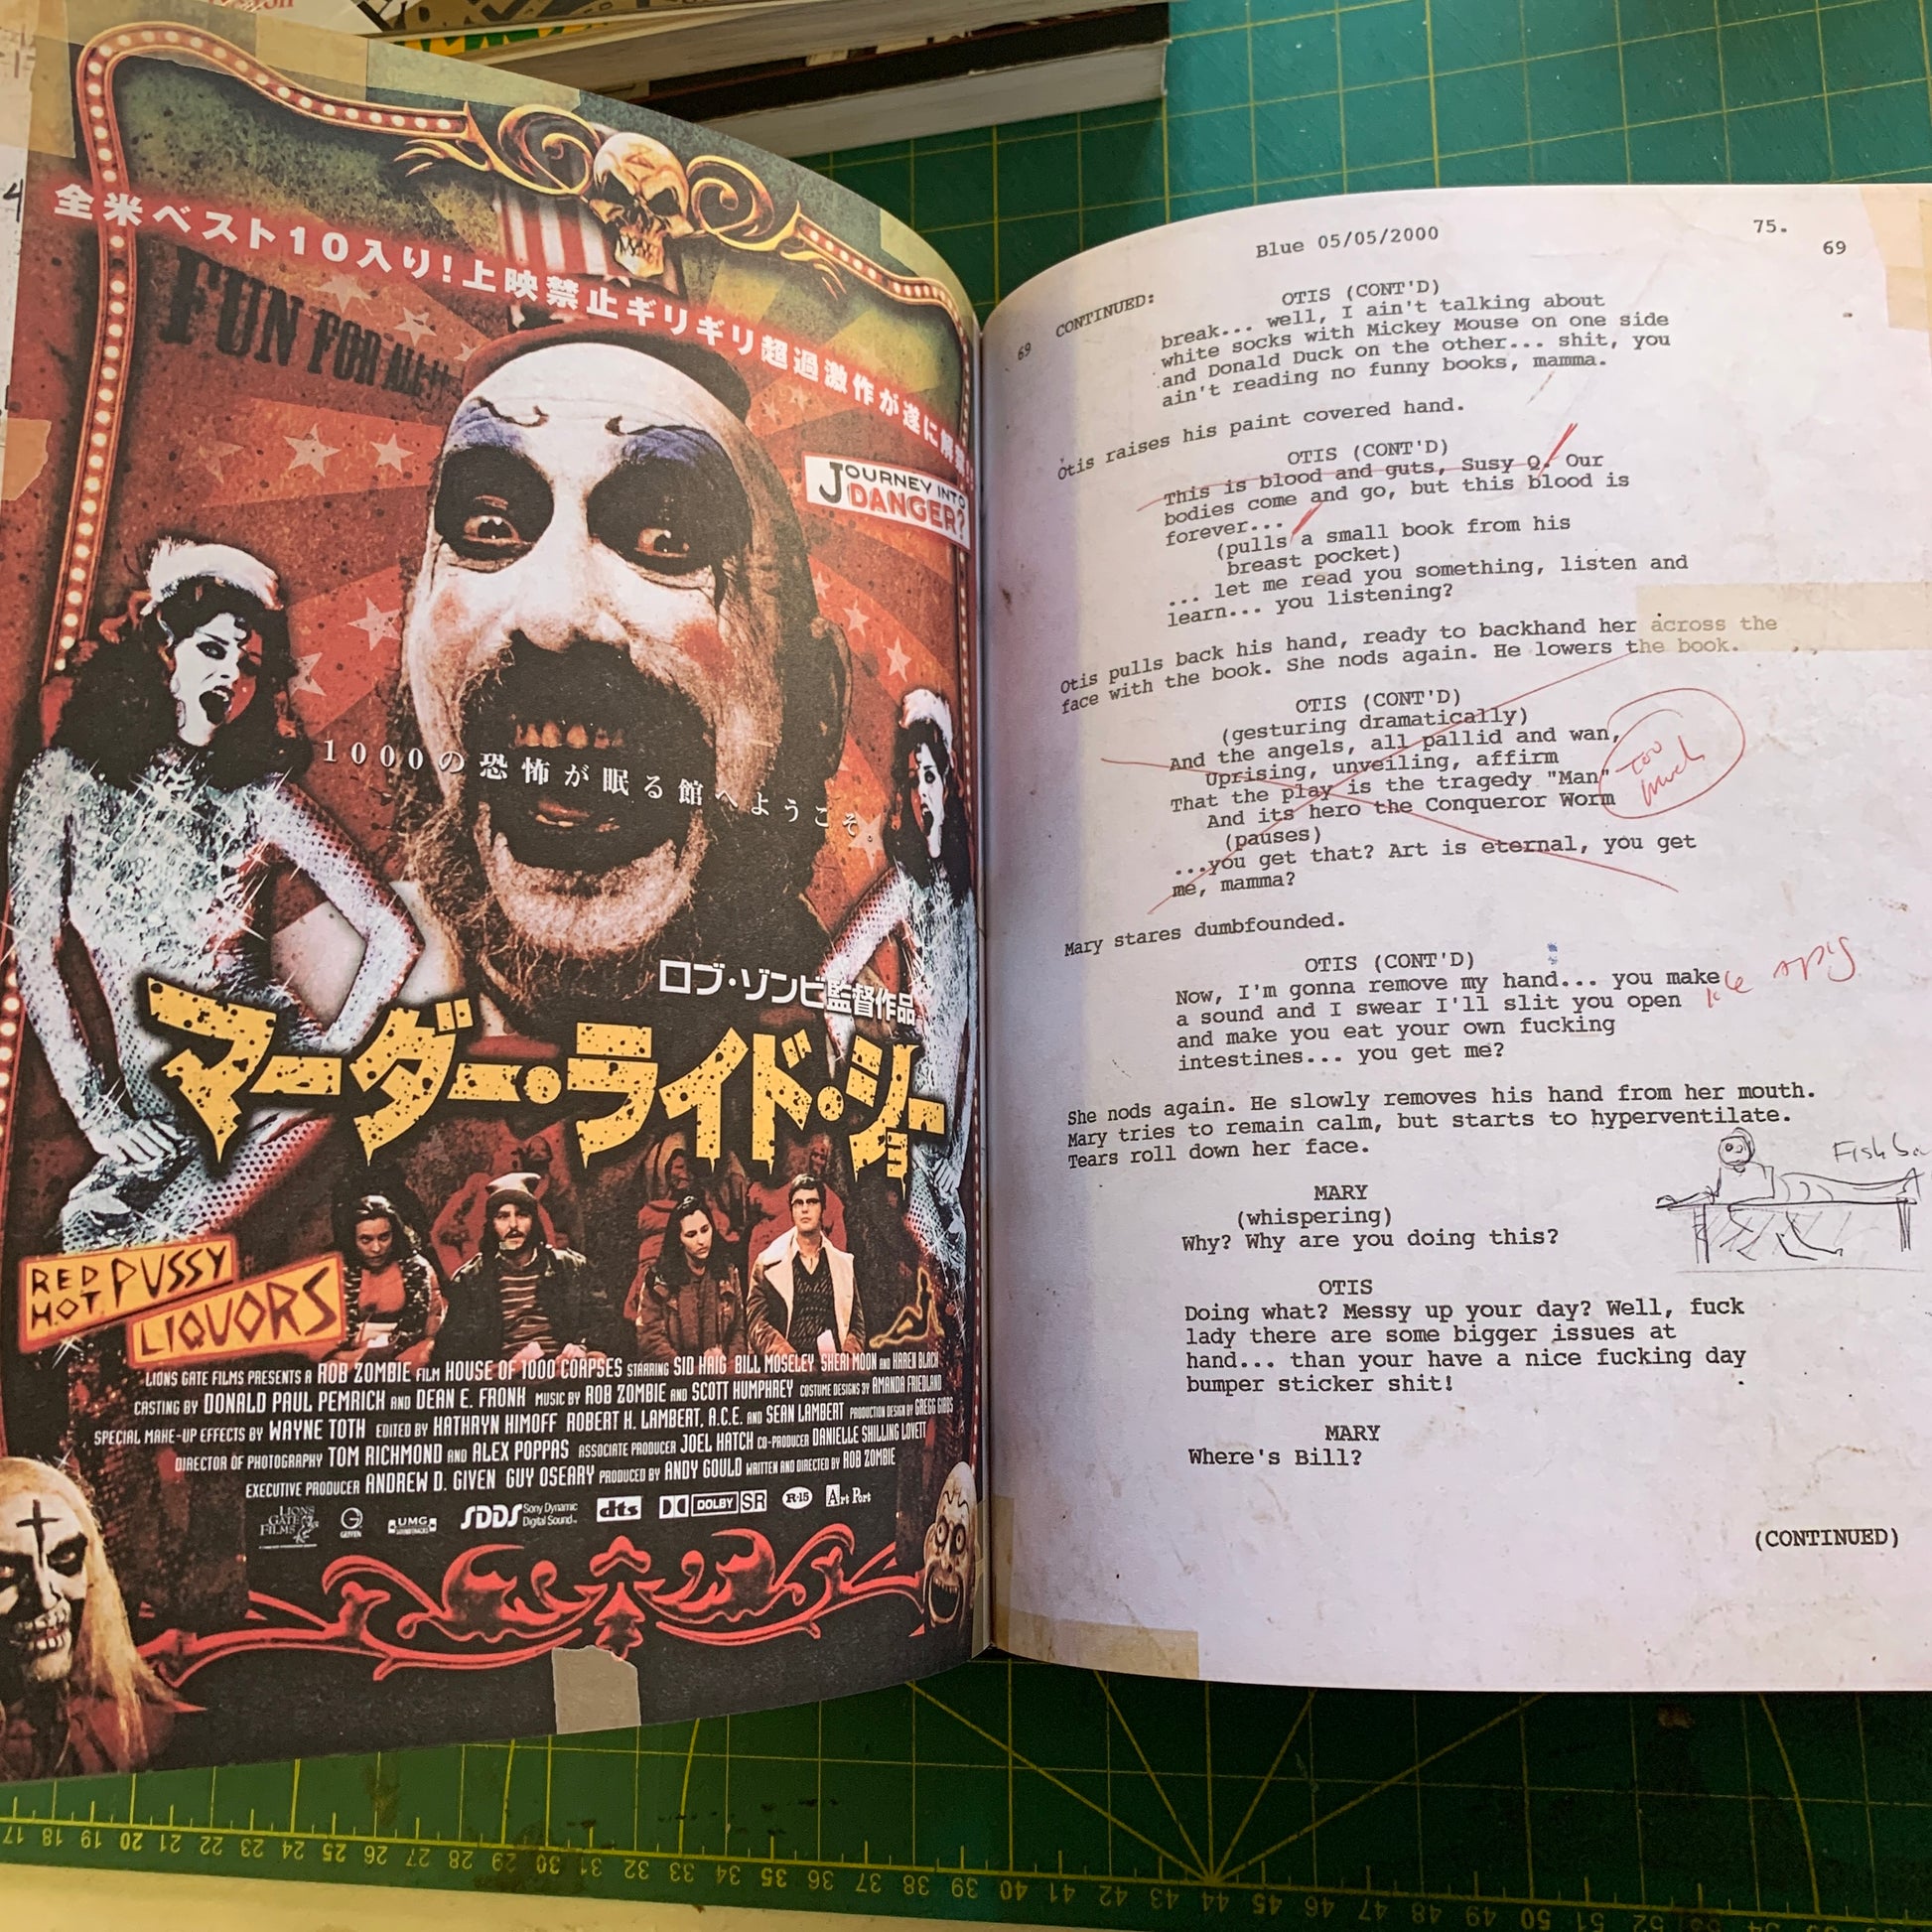 全米ベスト10入り!上映禁止ギリギリ超過激作が遂に解禁!!
FUN FOR ALL!!
JOURNEY INTO
DANGER?
1000の恐怖が眠る館へようこそ。
ロブ・ゾンビ監督作品
マーダー・ライド・ショー
RED HOT PUSSY
LIQUORS
LIONS GATE FILMS PRESENTS A ROB ZOMBIE FILM HOUSE OF 1000 CORPSES STARRING SID HAIG BILL MOSELEY SHERI MOON AND KAREN BLACK
CASTING BY DONALD PAUL PEMRICH AND DEAN E. FRONK MUSIC BY ROB ZOMBIE AND SCOTT HUMPHREY COSTUME DESIGNS BY AMANDA FRIEDLAND
SPECIAL MAKE-UP EFFECTS BY WAYNE TOTH EDITED BY KATHRYN HIMOFF ROBERT H. LAMBERT, A.C.E. AND SEAN LAMBERT PRODUCTION DESIGN BY GREGG GIBBS
DIRECTOR OF PHOTOGRAPHY TOM RICHMOND AND ALEX POPPAS ASSOCIATE PRODUCER JOEL HATCH CO-PRODUCER DANIELLE SHILLING LOVETT
EXECUTIVE PRODUCER ANDREW D. GIVEN GUY OSEARY PRODUCED BY ANDY GOULD WRITTEN AND DIRECTED BY ROB ZOMBIE
LIONS GATE FILMS GEFFEN UMG SOUNDTRACKS SDDS Sony Dynamic Digital Sound dts DOLBY SR R-15 Art Port
Blue 05/05/2000
75.
69 CONTINUED: 69
OTIS (CONT'D)
break... well, I ain't talking about
white socks with Mickey Mouse on one side
and Donald Duck on the other... shit, you
ain't reading no funny books, mamma.
Otis raises his paint covered hand.
OTIS (CONT'D)
This is blood and guts, Susy Q. Our
bodies come and go, but this blood is
forever...
(pulls a small book from his
breast pocket)
... let me read you something, listen and
learn... you listening?
Otis pulls back his hand, ready to backhand her across the
face with the book. She nods again. He lowers the book.
OTIS (CONT'D)
(gesturing dramatically)
And the angels, all pallid and wan,
Uprising, unveiling, affirm
That the play is the tragedy "Man"
And its hero the Conqueror Worm
(pauses)
...you get that? Art is eternal, you get
me, mamma?
too
much
Mary stares dumbfounded.
OTIS (CONT'D)
Now, I'm gonna remove my hand... you make
a sound and I swear I'll slit you open
and make you eat your own fucking
intestines... you get me?
She nods again. He slowly removes his hand from her mouth.
Mary tries to remain calm, but starts to hyperventilate.
Tears roll down her face.
MARY
(whispering)
Why? Why are you doing this?
OTIS
Doing what? Messy up your day? Well, fuck
lady there are some bigger issues at
hand... than your have a nice fucking day
bumper sticker shit!
MARY
Where's Bill?
(CONTINUED)
17 18 19 20 21 22 23 24 25 26 27 28 29 30 31 32 33 34 35 36 37 38 39 40 41 42 43 44 45 46 47 48 49 50 51 52